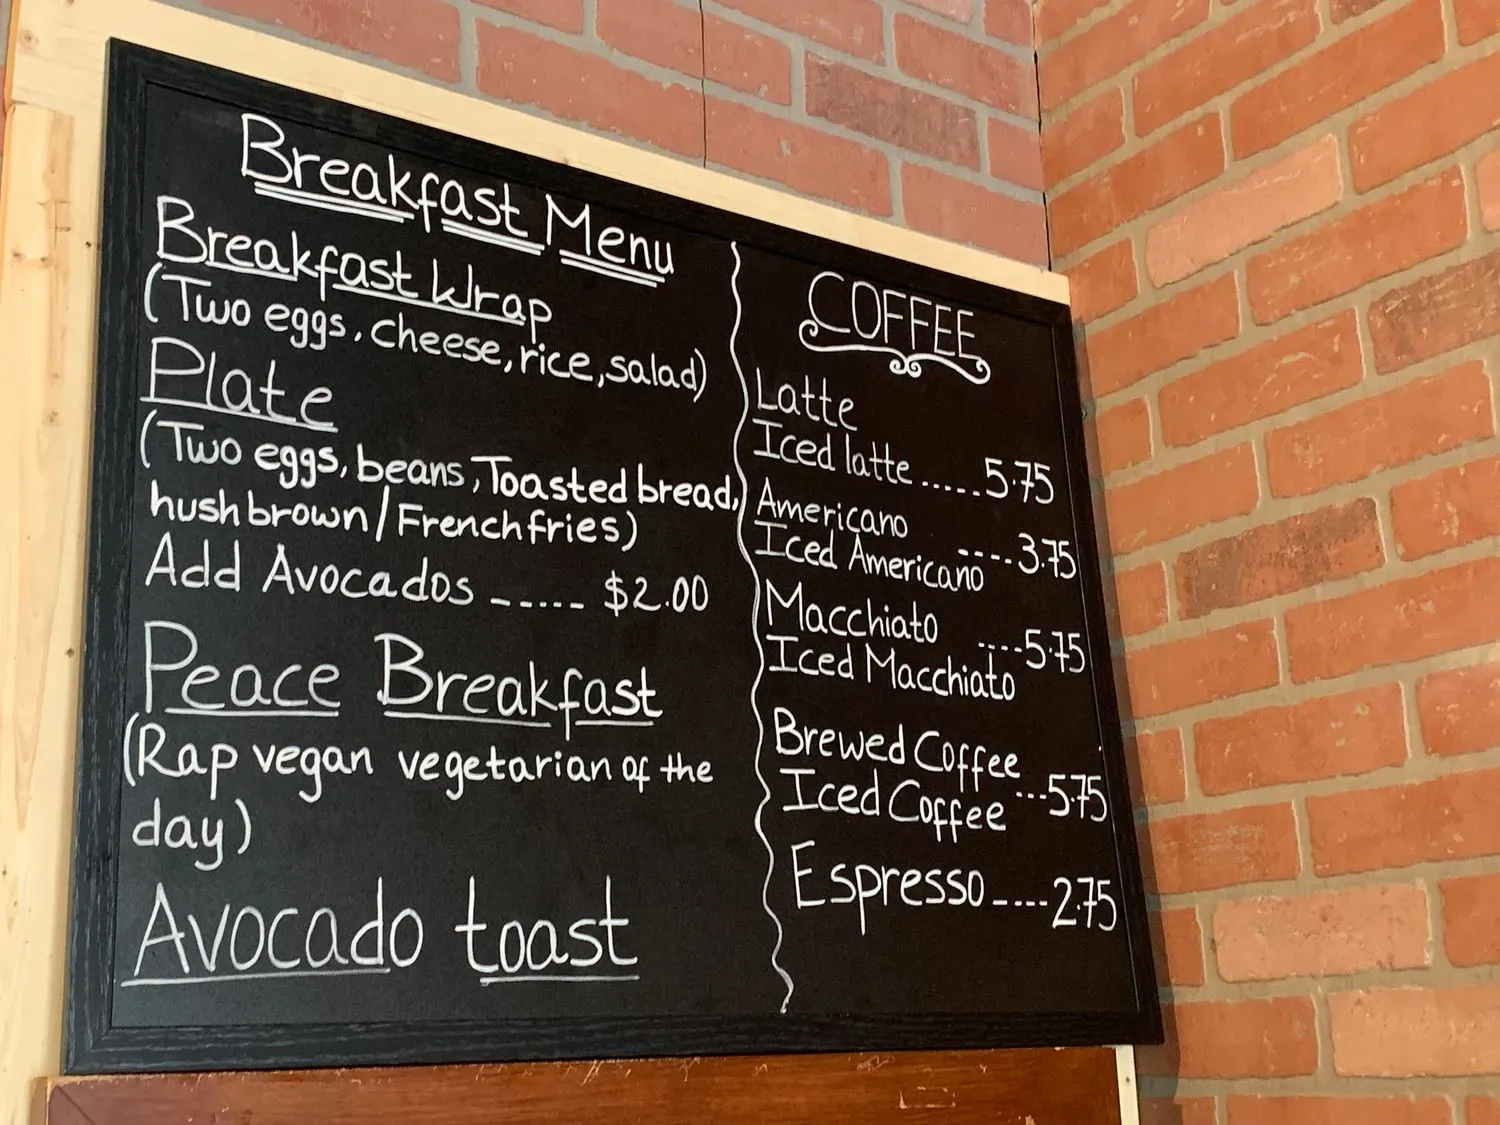 Breakfast Menu
Breakfast Wrap
(Two eggs, cheese, rice, salad)
Plate
(Two eggs, beans, Toasted bread,
hushbrown/French fries)
Add Avocados ----- $2.00
Peace Breakfast
(Rap vegan vegetarian of the
day)
Avocado toast
COFFEE
Latte
Iced latte.....5.75
Americano
Iced Americano ----3.75
Macchiato ----5.75
Iced Macchiato
Brewed Coffee
Iced Coffee ---5.75
Espresso----2.75